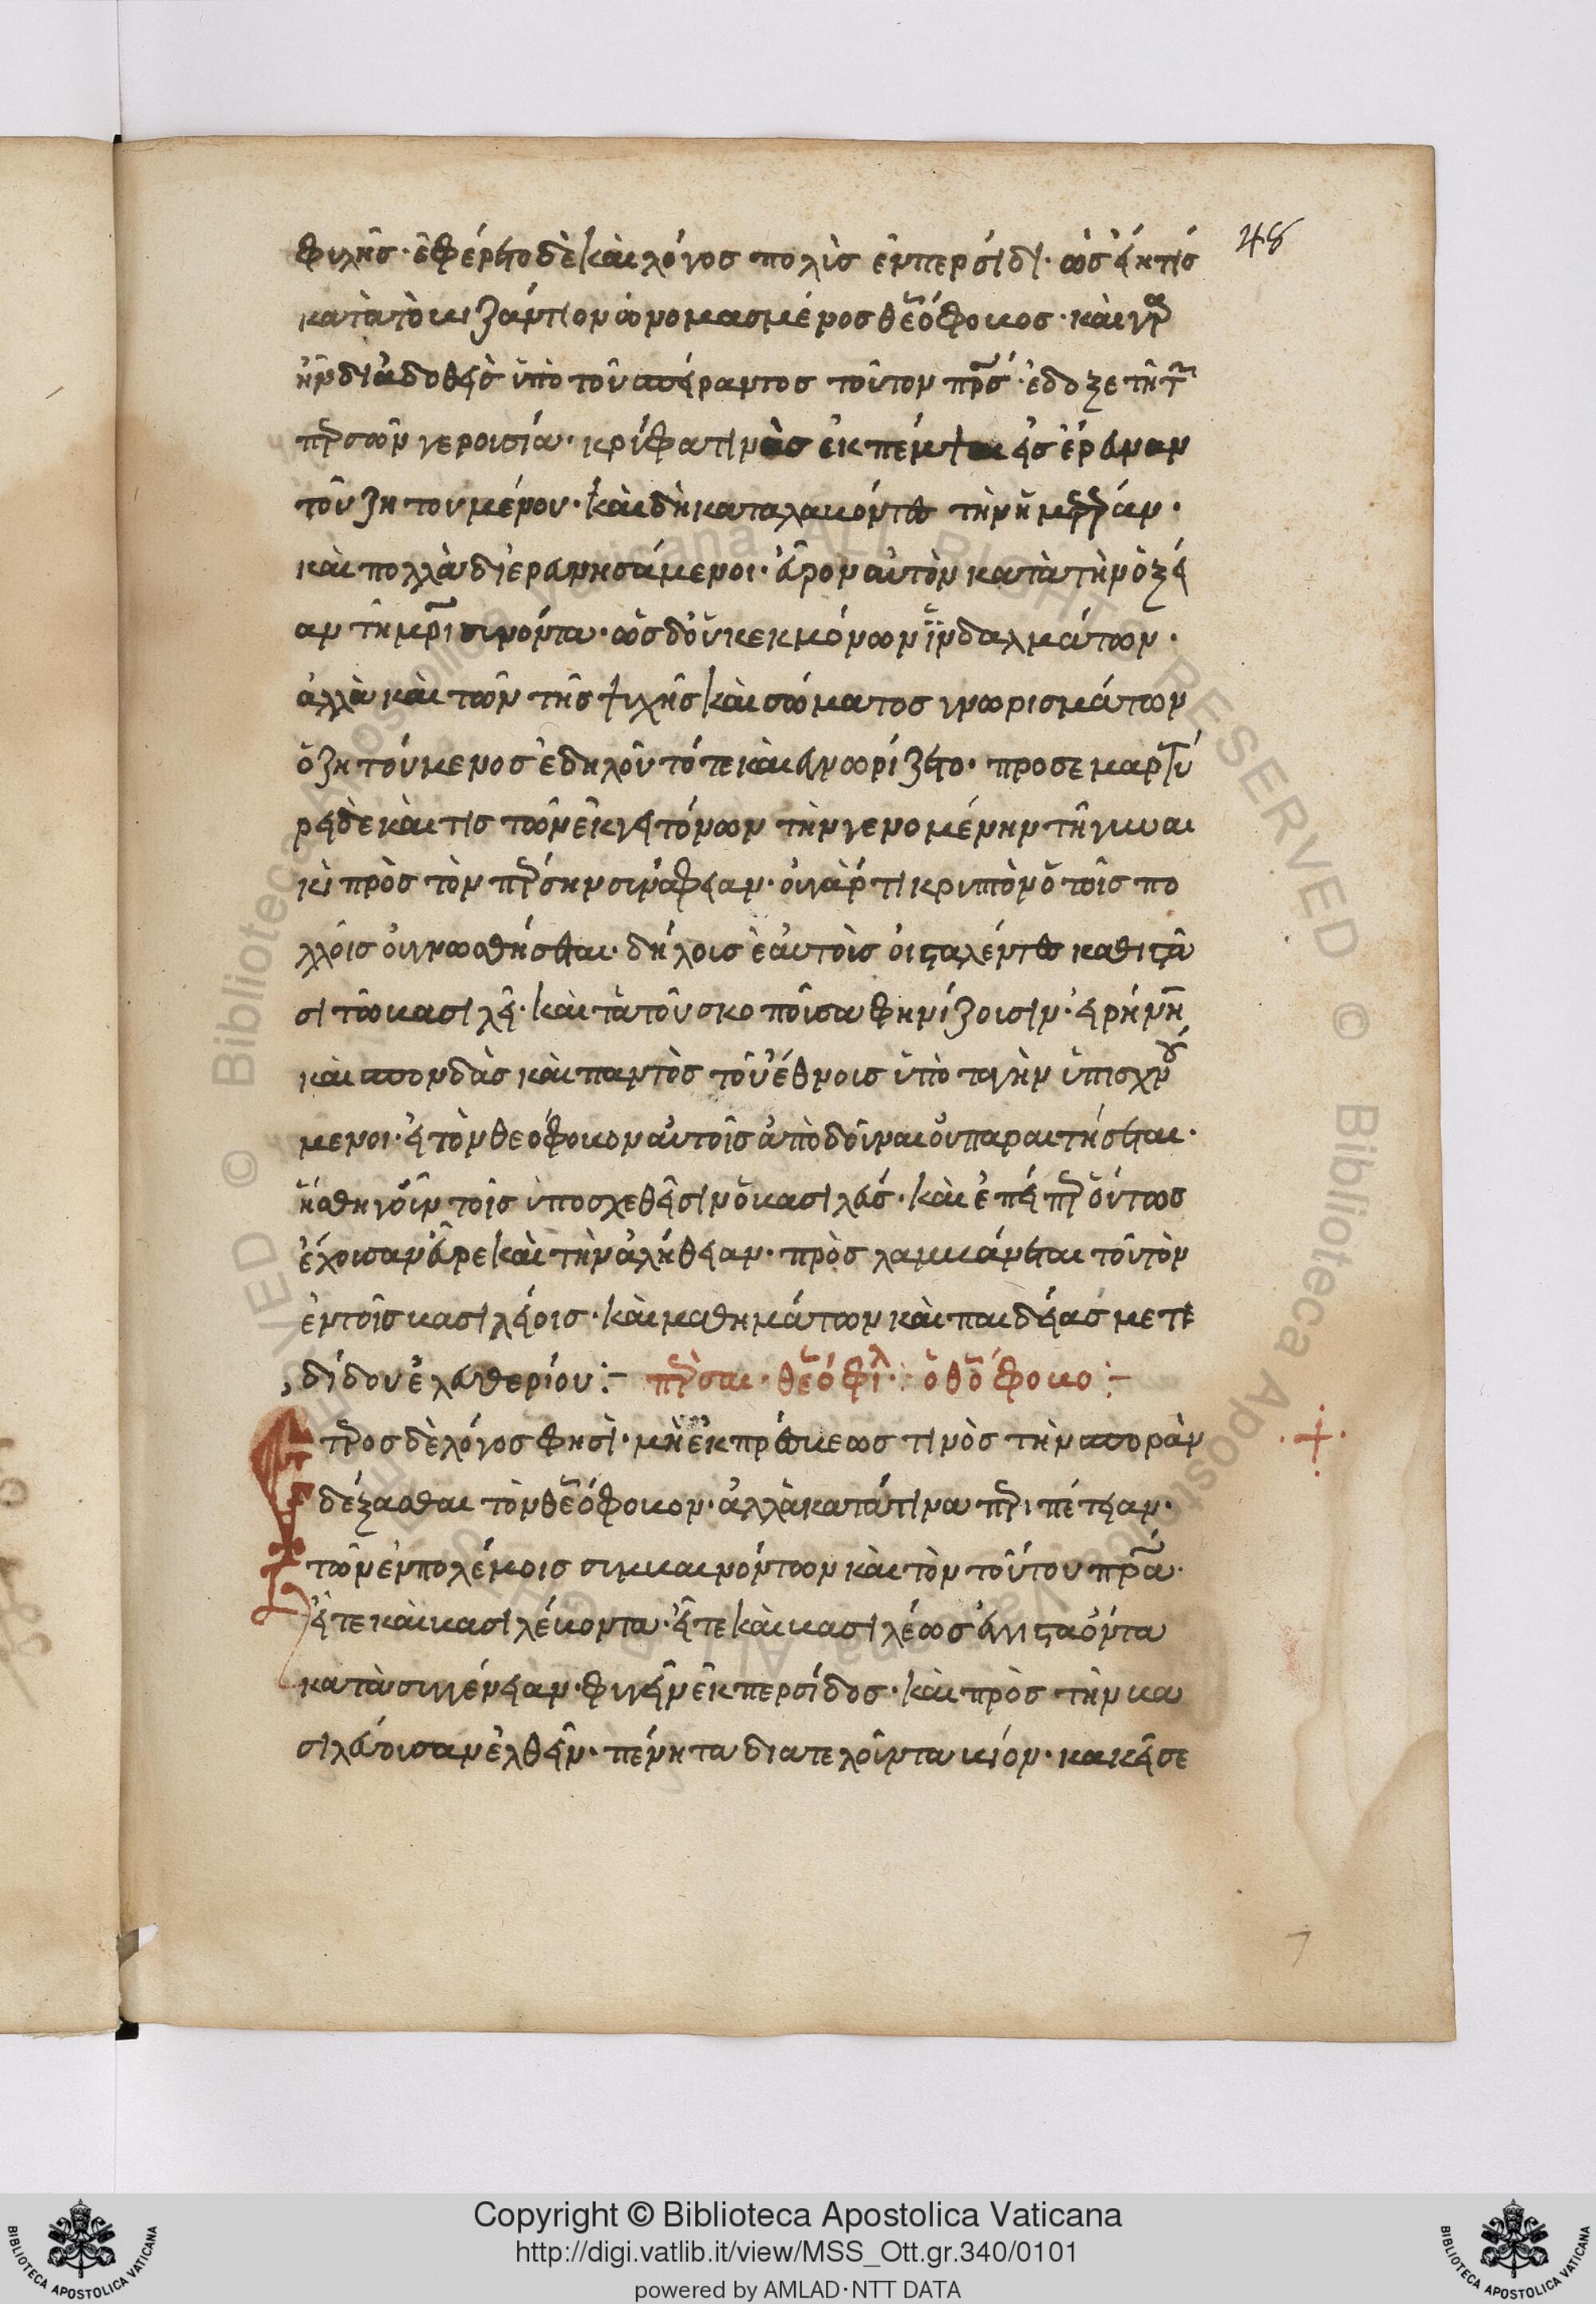 48
φιλῆς· ἐφέρετο δὲ καὶ λόγος πολὺς ἐν περσίδι· ὡς εἴη τίς
κατὰ τὸ βυζάντιον ὠνομασμένος θεόφοβος· καὶ γὰρ
ἦν διαδοθεὶς ὑπὸ τοῦ σπείραντος τοῦτον πρς· ἔδοξε τῆ τ
πρσῶν γερουσία· κρύφα τινὰς ἐκπέμψαι εἰς ἔρευναν
τοῦ ζητουμένου· καὶ δὴ καταλαβόντες τὴν ἡμετέραν·
καὶ πολλὰ διερευνησάμενοι· εὗρον αὐτὸν κατὰ τὴν ὀξεῖ
αν τῆ μρι συνόντα· ὡς δ' οὐκ εκ μόνων ἰνδαλμάτων·
ἀλλὰ καὶ τῶν τῆς ψυχῆς καὶ σώματος γνωρισμάτων
ὁ ζητούμενος ἐδηλοῦτό τε καὶ εγνωρίζετο· προσεμαρτύ
ρει δε καὶ τις τῶν ἐκ γειτόνων τὴν γενομένην τῆ γυναι
κὶ πρὸς τὸν πέρσην συνάφειαν· οὐ γὰρ τι κρυπτὸν ὃ τοῖς πο
λλοῖς οὐ γνωσθήσεται· δήλους ἑαυτοὺς οἱ σταλέντες καθιστᾶ
σι τῶ βασιλεῖ· καὶ τὰ τοῦ σκοποῦ σαφηνίζουσιν· εἰρήνην
καὶ σπονδὰς καὶ παντὸς τοῦ ἔθνους ὑποταγὴν ὑπισχνού
μενοι· εἰ τὸν θεόφοβον αὐτοῖς ἀποδοῦναι οὐ παραιτήσεται·
ἥσθη γοῦν τοῖς ὑποσχεθεῖσιν ὁ βασιλεύς· καὶ ἐπείπερ οὕτως
ἔχουσαν εὗρε καὶ τὴν ἀλήθειαν· πρὸς λαμβάνεται τοῦτον
ἐν τοῖς βασιλείοις· καὶ μαθημάτων καὶ παιδείας μετε
δίδου ἐλευθερίου:– πρσαι· θεόφιλ· ὁ θεόφοβο:–
Ἕτερος δὲ λόγος φησὶ· μὴ ἐκ πρέσβεως τινὸς τὴν σπορὰν
δέξασθαι τὸν θεόφοβον· ἀλλὰ κατά τινα περιπέτειαν·
τῶν ἐν πολέμοις συμβαινόντων καὶ τὸν τούτου πρα·
εἴτε καὶ βασιλέα ὄντα· εἴτε καὶ βασιλέως ἀγχιστὰ ὄντα
κατὰ συγγένειαν· φυγεῖν ἐκ περσίδος· καὶ πρὸς τὴν βα
σιλεύουσαν ἐλθεῖν· πένητα διατελοῦντα βίον· κακεῖσε
Copyright © Biblioteca Apostolica Vaticana
http://digi.vatlib.it/view/MSS_Ott.gr.340/0101
powered by AMLAD·NTT DATA